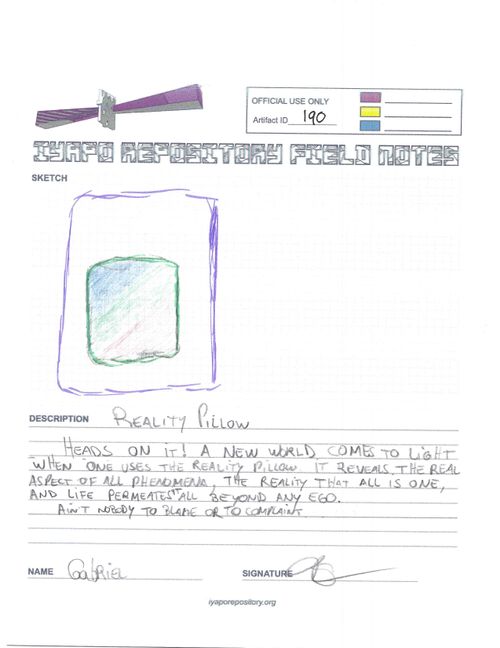 OFFICIAL USE ONLY
Artifact ID 190
IYAPO REPOSITORY FIELD NOTES
SKETCH
DESCRIPTION REALITY PILLOW
HEADS ON IT! A NEW WORLD COMES TO LIGHT
WHEN ONE USES THE REALITY PILLOW. IT REVEALS THE REAL
ASPECT OF ALL PHENOMENA, THE REALITY THAT ALL IS ONE,
AND LIFE PERMEATES IT ALL BEYOND ANY EGO.
AIN'T NOBODY TO BLAME OR TO COMPLAINT.
NAME GABRIEL SIGNATURE
iyaporepository.org